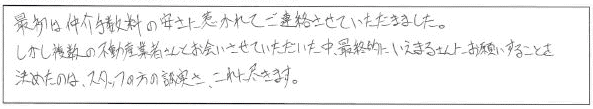 最初は仲介手数料の安さに惹かれてご連絡させていただきました。
しかし複数の不動産業者さんとお会いさせていただいた中、最終的にいえまるさんにお願いすることを
決めたのは、スタッフの方の誠実さ、これに尽きます。